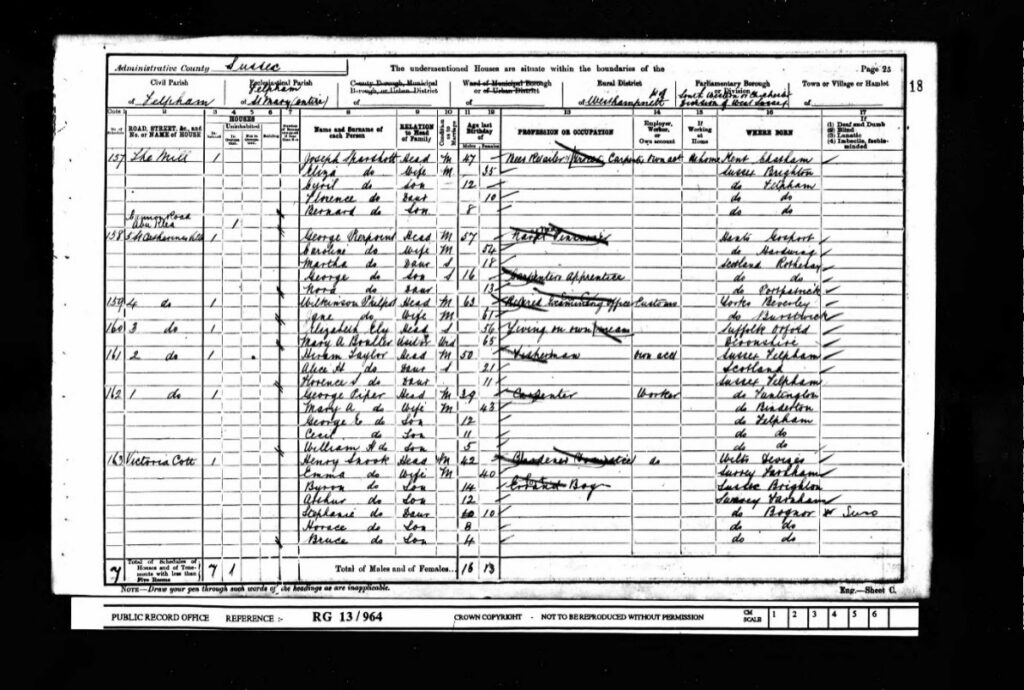 Administrative County Sussex The undermentioned Houses are situate within the boundaries of the Page 23
18
Civil Parish Ecclesiastical Parish County Borough, Municipal Borough, or Urban District Ward of Municipal Borough or of Urban District Rural District Parliamentary Borough or Division Town or Village or Hamlet
of Felpham of Felpham St Mary (entire) of of of Westhampnett of of
1 2 3 4 5 6 7 8 9 10 11 12 13 14 15 16 17
No. of Schedule ROAD, STREET, &c., and No. or NAME of HOUSE HOUSES Inhabited Uninhabited Name and Surname of each Person RELATION to Head of Family Condition as to Marriage Age last Birthday of Males Females PROFESSION OR OCCUPATION Employer, Worker, or Own account If Working at Home WHERE BORN (1) Deaf and Dumb (2) Blind (3) Lunatic (4) Imbecile, feeble-minded
157 The Mill 1 Joseph Head M 47 Beer Retailer Carpenter Own acct At home Kent Chatham
Eliza do Wife M 35 Sussex Brighton
Cyril do Son 12 do Felpham
Florence do Daur 10 do do
Bernard do Son 8 do do
Road 1
158 5 St 1 George Pierpoint Head M 57 Hants Gosport
Caroline do Wife M 54 do
Martha do Daur S 18 Scotland Rothesay
George do Son S 16 Carpenters Apprentice do do
Nora do Daur 13 do Portpatrick
159 4 do 1 Wilkinson Philpot Head M 63 Retired Examining Officer Customs Yorks Beverley
Jane do Wife M 61 do
160 3 do 1 Elizabeth Ely Head S 56 Living on own means Suffolk Orford
Mary A Visitor Wid 65 Devonshire
161 2 do 1 Hiram Taylor Head M 50 Fisherman Own acct Sussex Felpham
Alice H do Daur S 21 Scotland
Florence S do Daur 11 Sussex Felpham
162 1 do 1 George Piper Head M 39 Carpenter Worker do Funtington
Mary A do Wife M 43 do Binderton
George E do Son 12 do Felpham
Cecil do Son 11 do do
William H do Son 5 do do
163 Victoria Cott 1 Henry Snook Head M 42 Gardener Domestic do Wilts Devizes
Emma do Wife M 40 Surrey Farnham
Byron do Son 14 Errand Boy Sussex Brighton
Arthur do Son 12 Surrey Farnham
Stephanie do Daur 10 do Bognor
Horace do Son 8 do do
Bruce do Son 4 do do
7 Total of Schedules of Houses and of Tenements with less than Five Rooms 7 1 Total of Males and of Females... 16 13
NOTE—Draw your pen through such words of the headings as are inapplicable. Eng.—Sheet C.
PUBLIC RECORD OFFICE REFERENCE :- RG 13/964 CROWN COPYRIGHT - NOT TO BE REPRODUCED WITHOUT PERMISSION CM SCALE 1 2 3 4 5 6